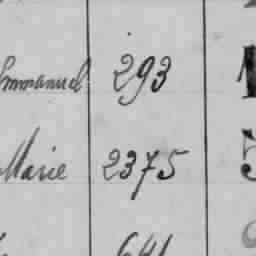 Emmanuel 293 1
Marie 2375 5
641